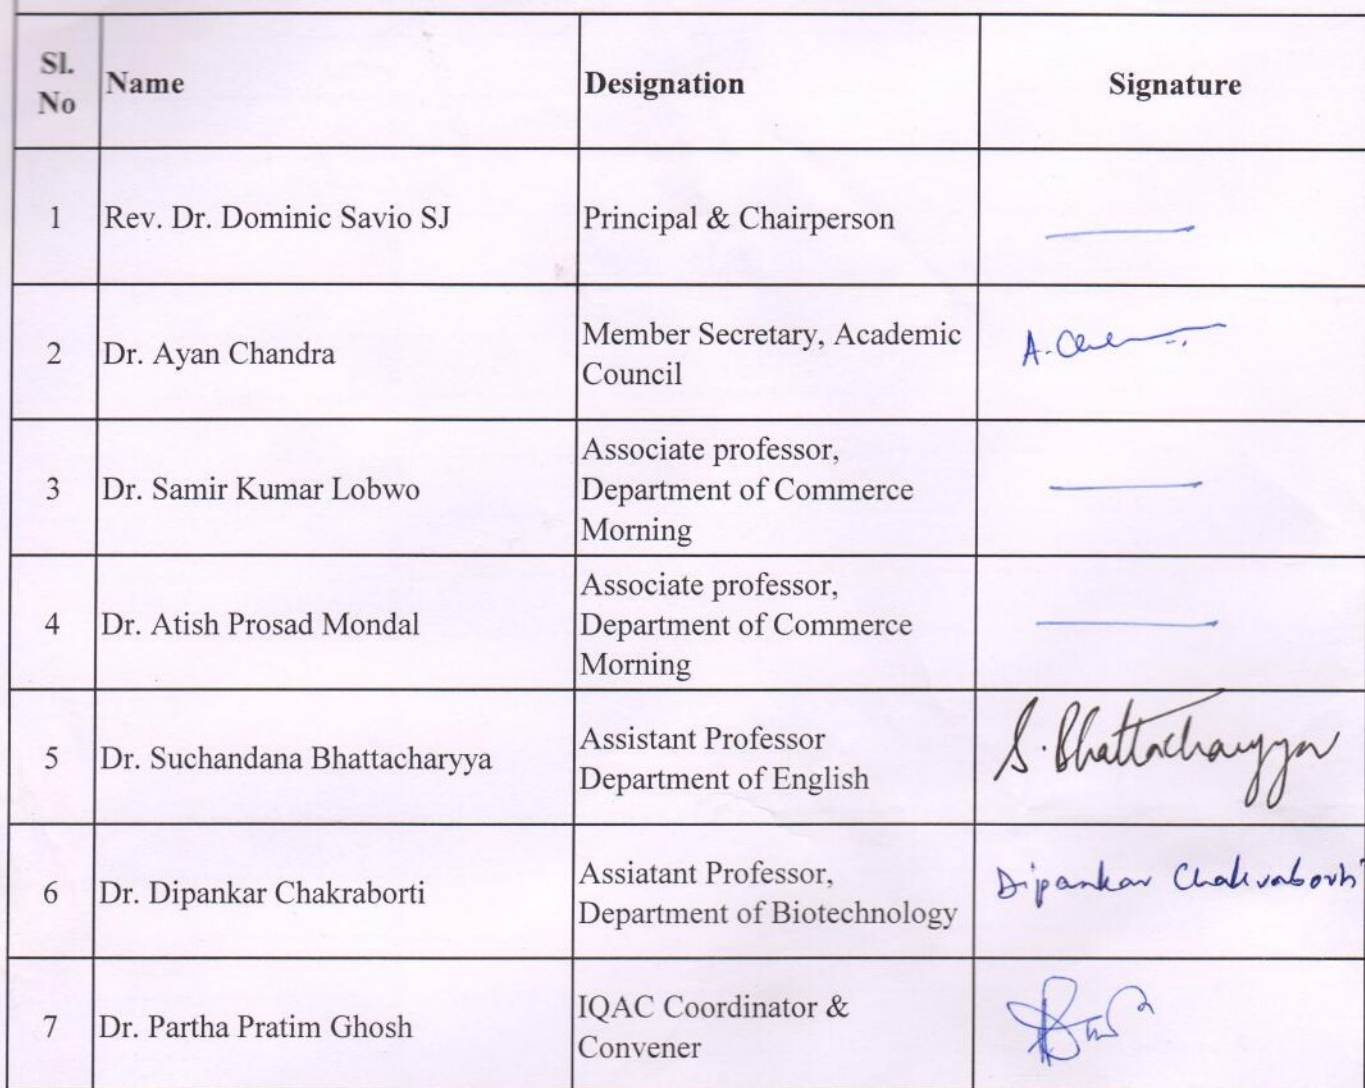 Sl. No Name Designation Signature
1 Rev. Dr. Dominic Savio SJ Principal & Chairperson
2 Dr. Ayan Chandra Member Secretary, Academic
Council
3 Dr. Samir Kumar Lobwo Associate professor,
Department of Commerce
Morning
4 Dr. Atish Prosad Mondal Associate professor,
Department of Commerce
Morning
5 Dr. Suchandana Bhattacharyya Assistant Professor
Department of English
S. Bhattacharyya
6 Dr. Dipankar Chakraborti Assiatant Professor,
Department of Biotechnology
Dipankar Chakraborti
7 Dr. Partha Pratim Ghosh IQAC Coordinator &
Convener